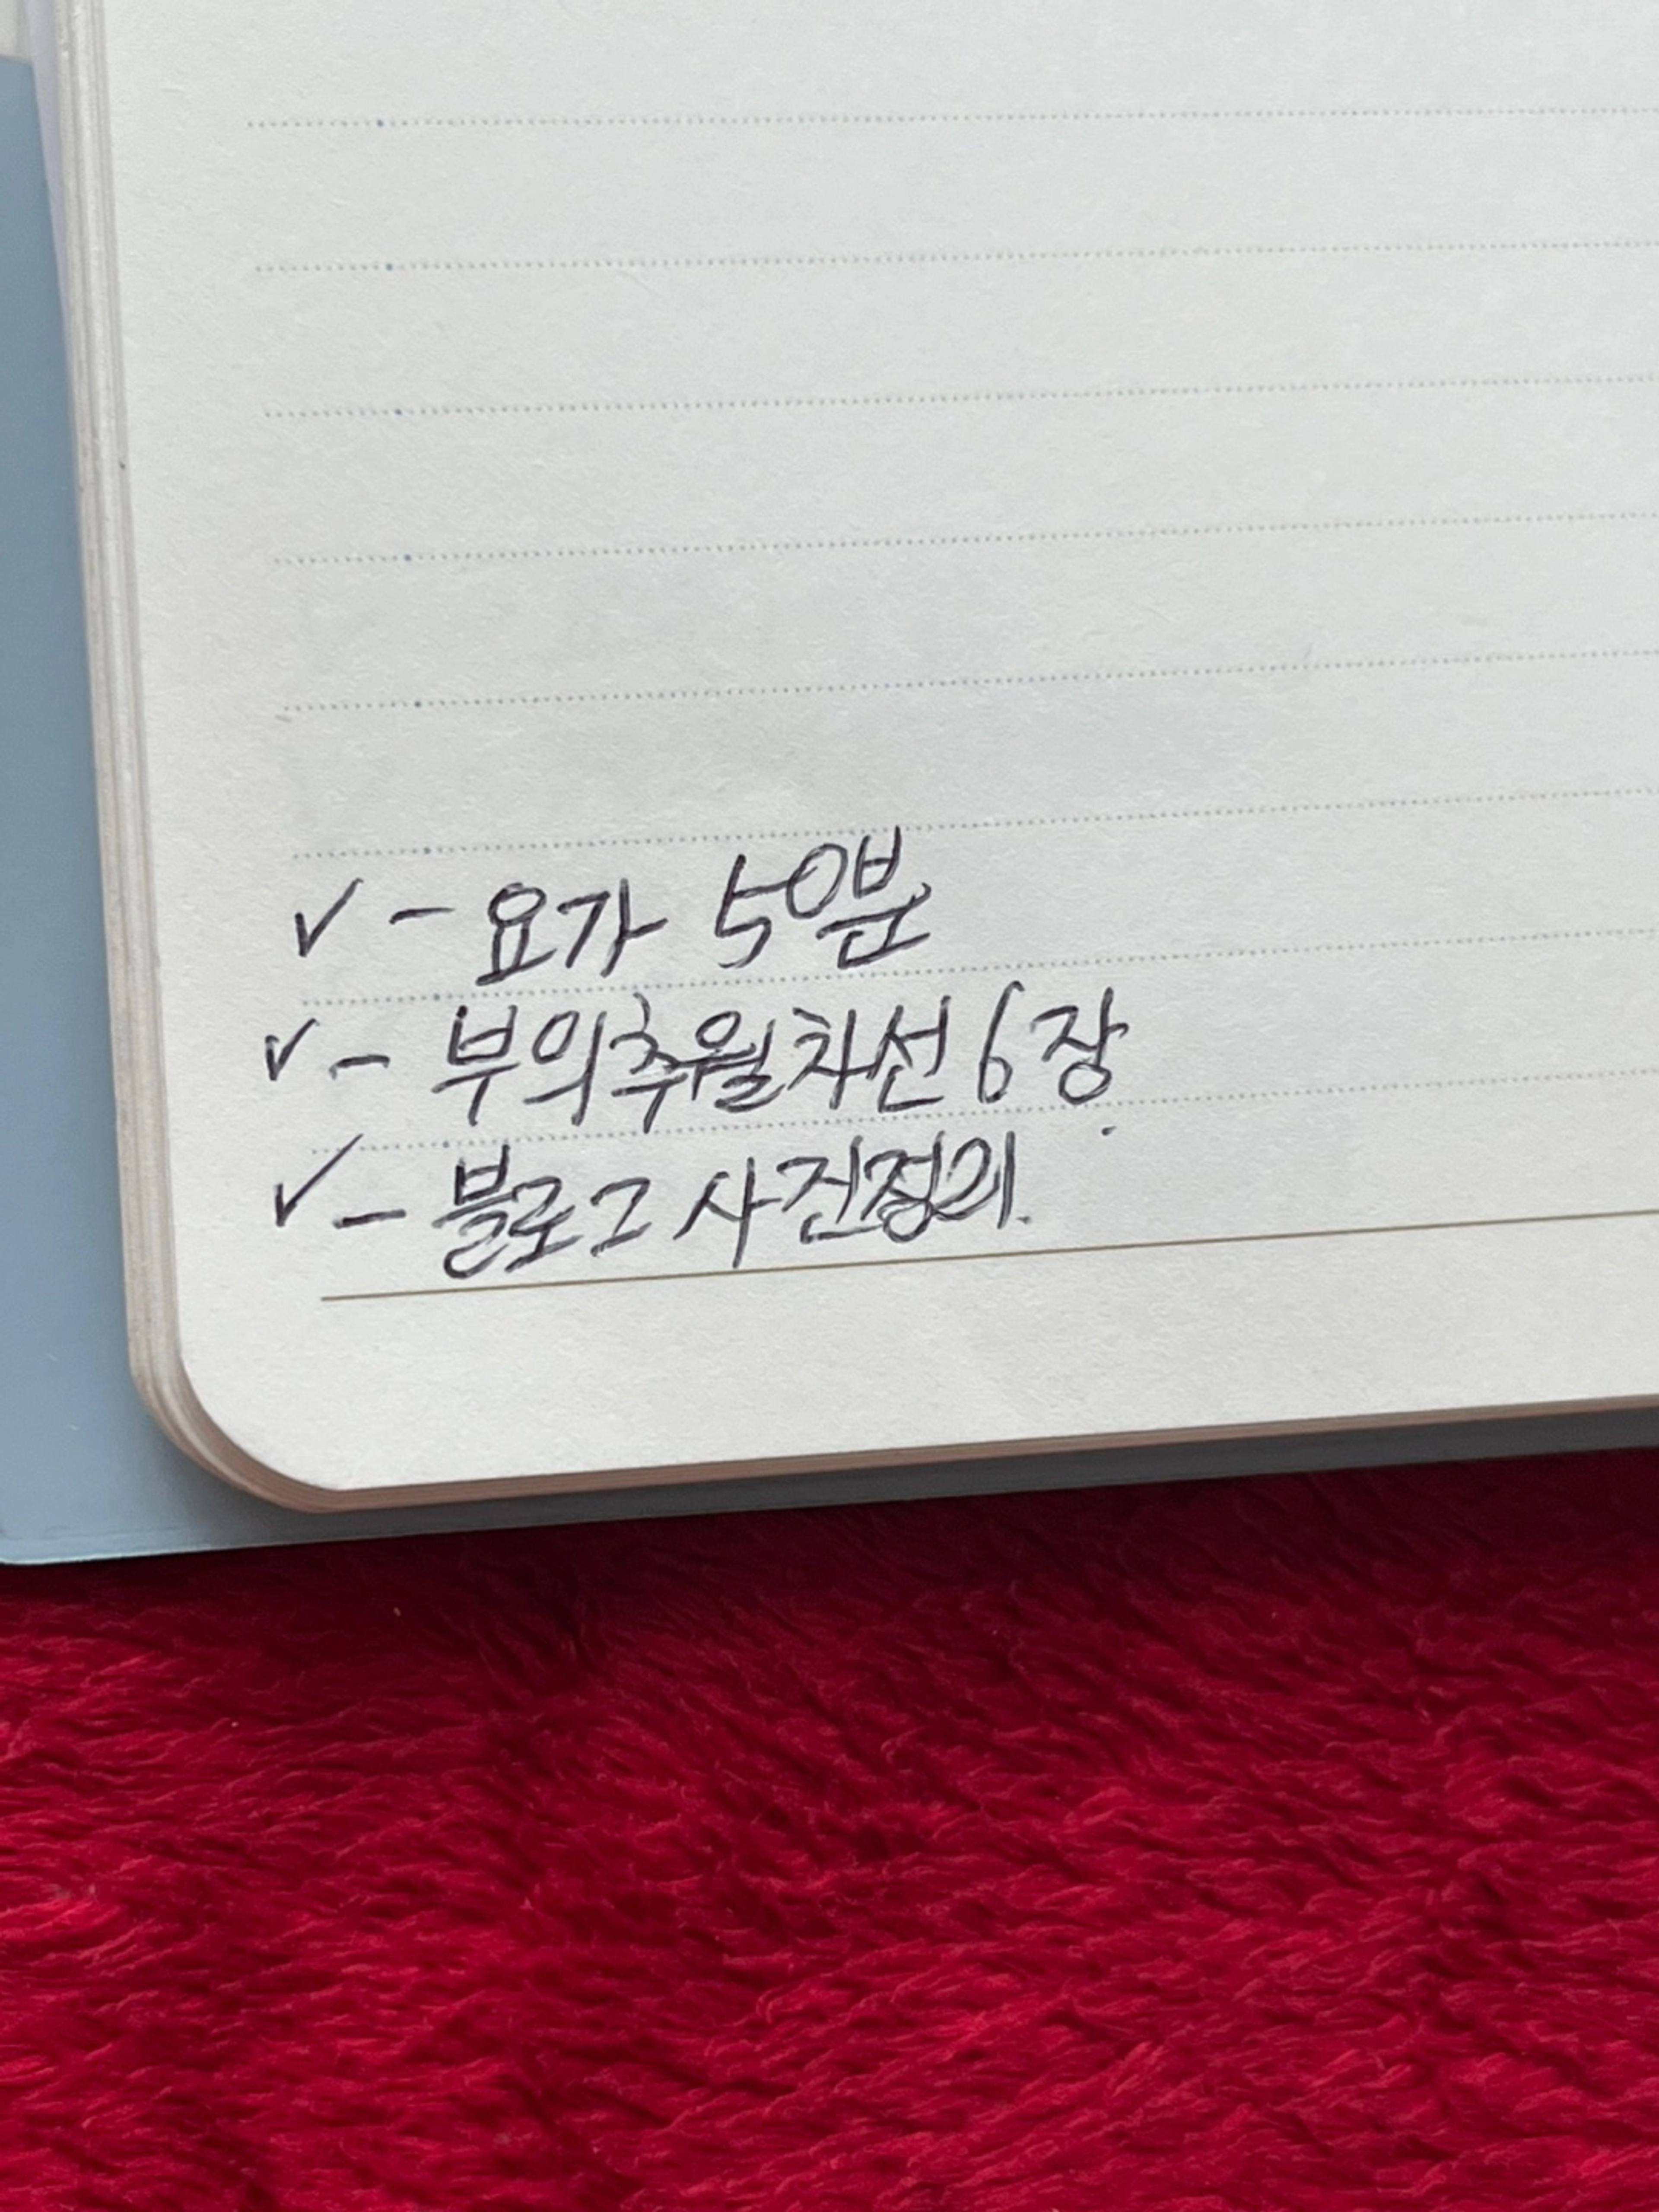 ✓ - 요가 50분
✓ - 부의추월차선 6장
✓ - 블로그 사진정리.